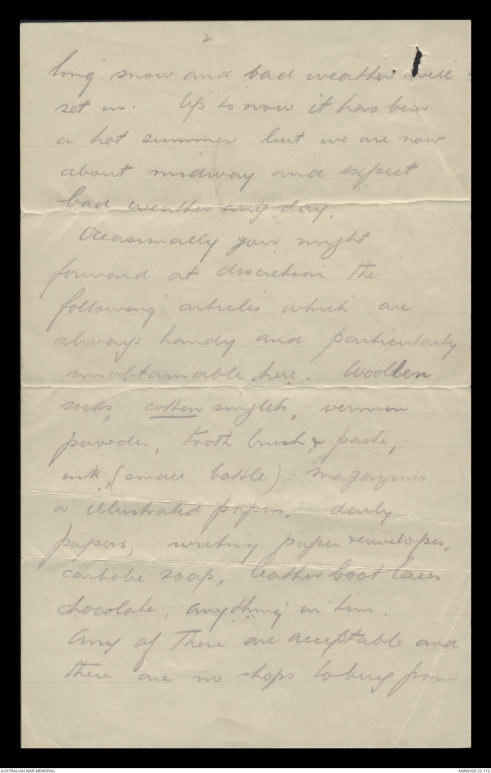 2
long snow and bad weather will
set in. Up to now it has been
a hot summer but we are now
about midway and expect
bad weather any day.
Occasionally you might
forward at discretion the
following articles which are
always handy and particularly
unobtainable here. Woollen
socks, cotton singlets, vermin
powder, tooth brush & paste,
ink, (small bottle) magazines
or illustrated papers, daily
papers, writing paper & envelopes,
carbolic soap, leather boot laces
chocolate, anything in tins.
Any of these are acceptable and
there are no shops to buy from
AUSTRALIAN WAR MEMORIAL